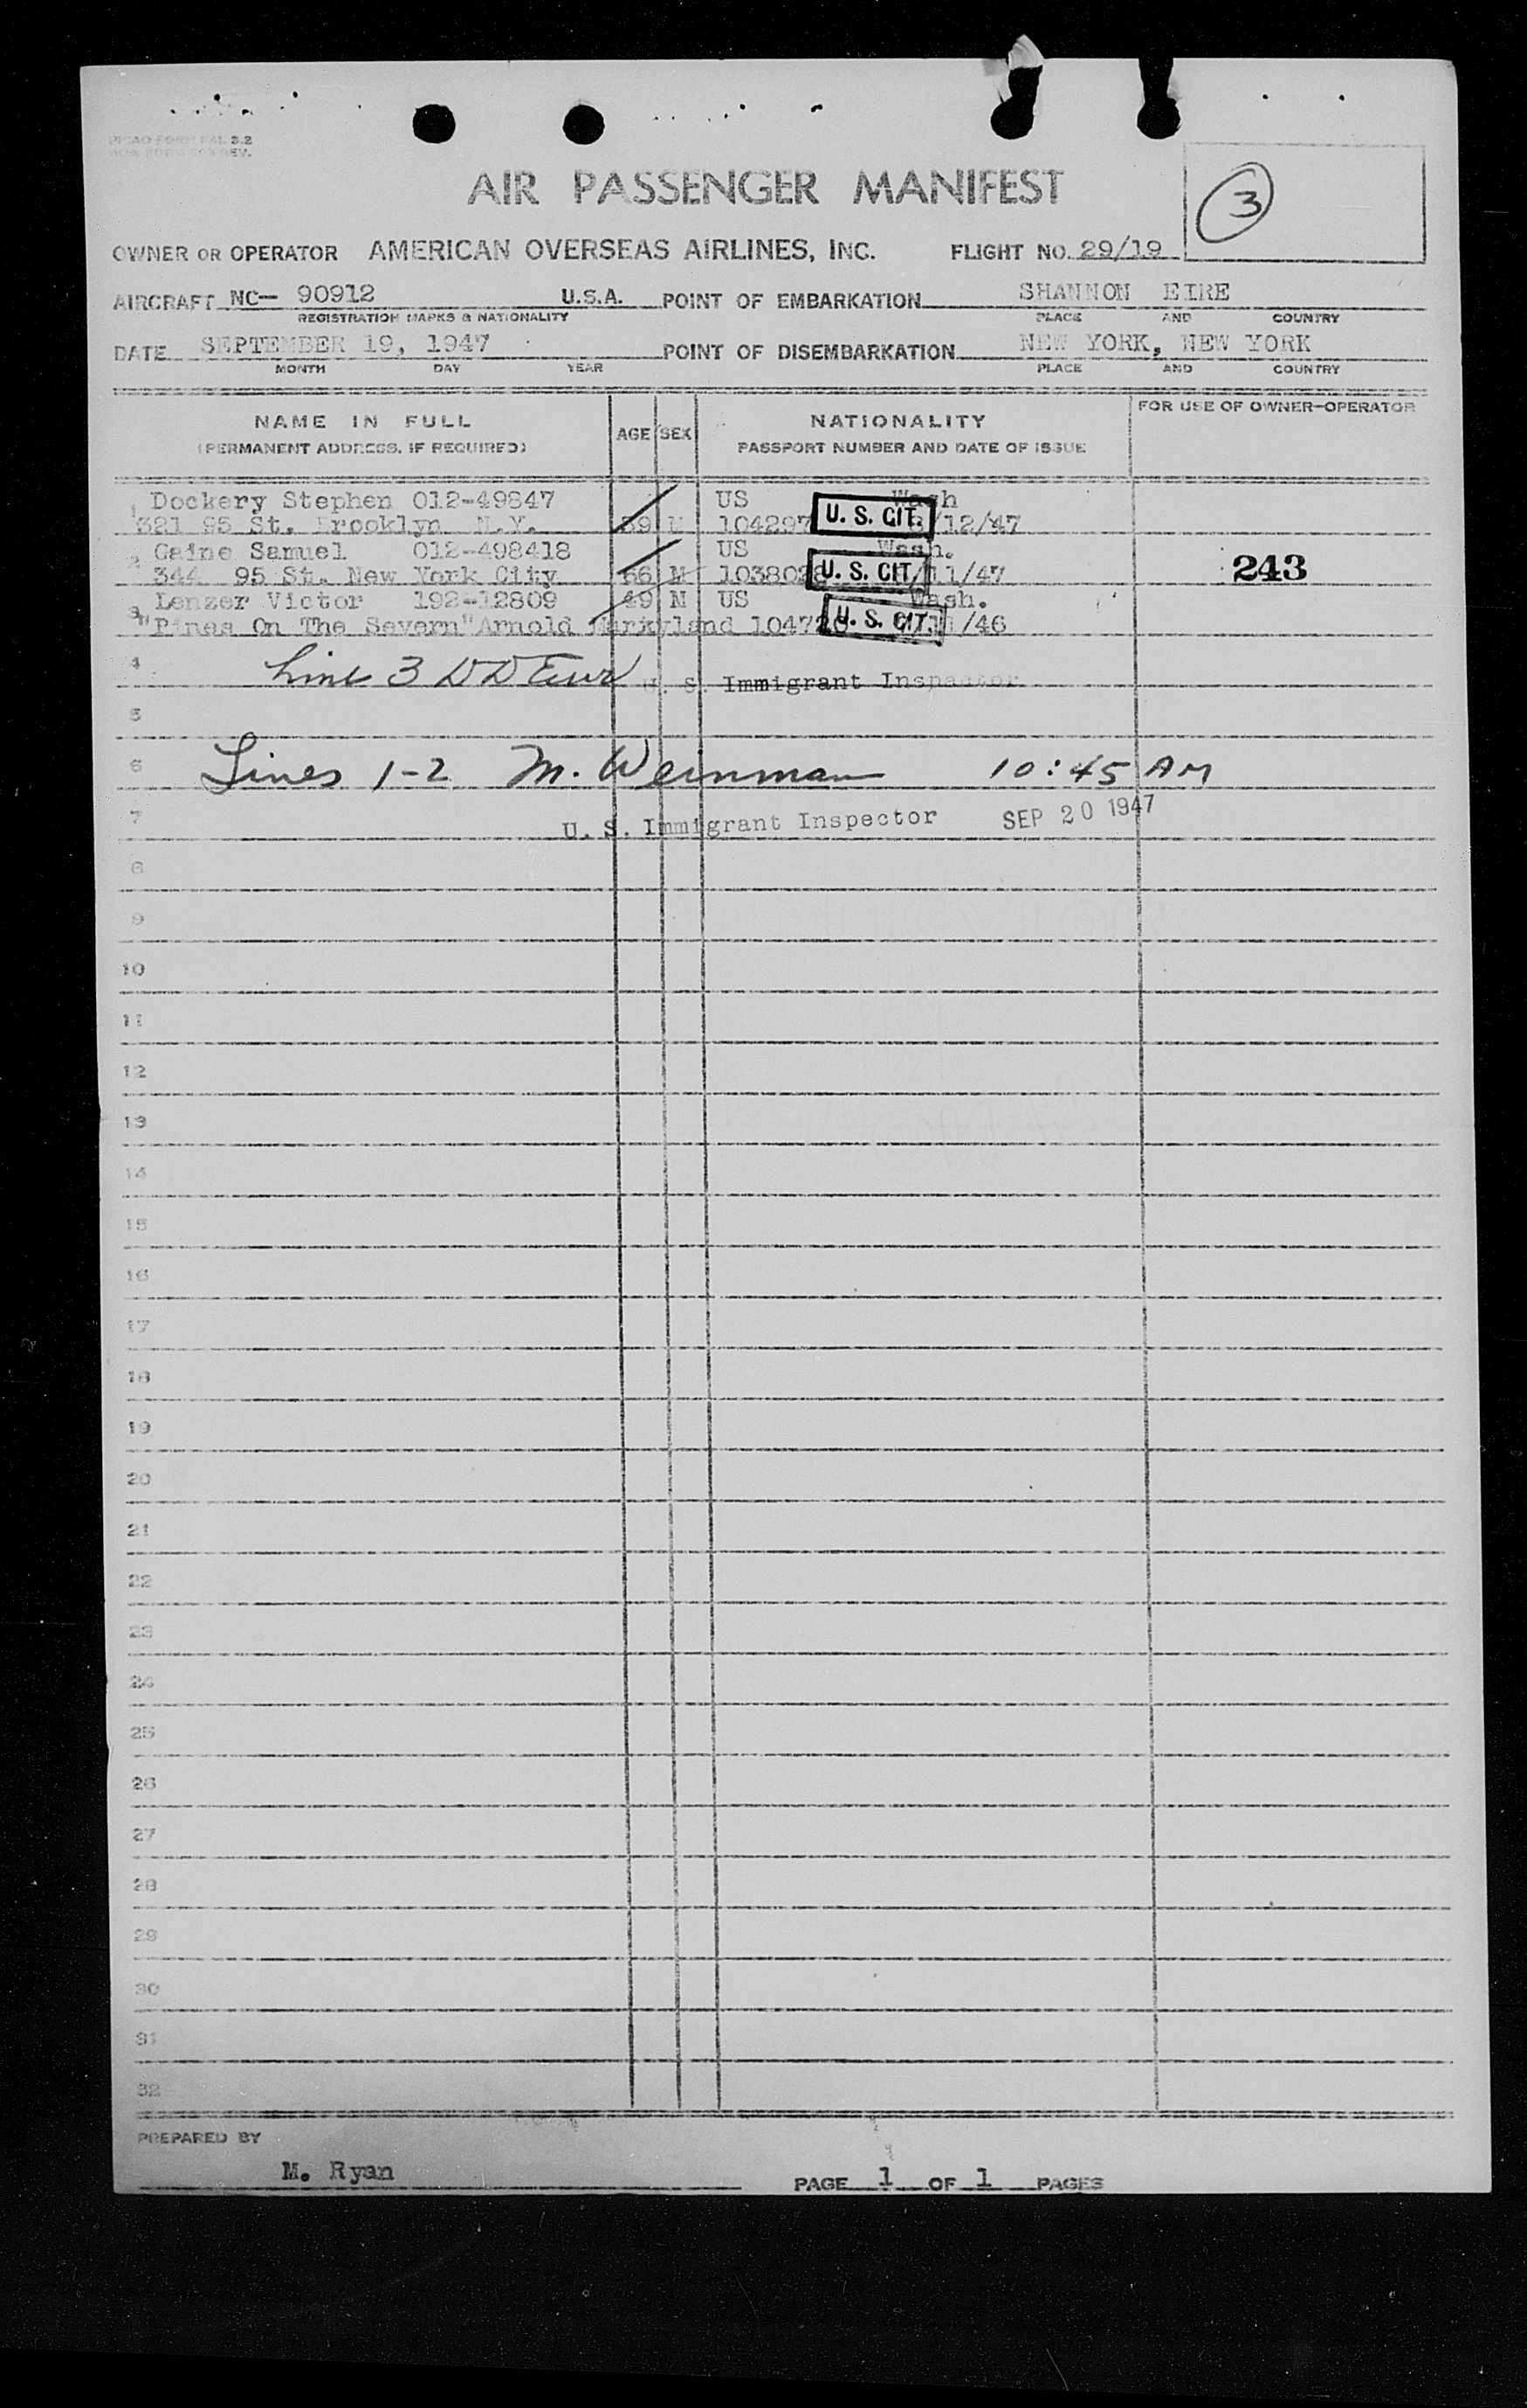 3.2
REV.
AIR PASSENGER MANIFEST
3
OWNER OR OPERATOR AMERICAN OVERSEAS AIRLINES, INC. FLIGHT NO. 29/19
AIRCRAFT NC- 90912 U.S.A. POINT OF EMBARKATION SHANNON EIRE
REGISTRATION MARKS & NATIONALITY PLACE AND COUNTRY
DATE SEPTEMBER 19, 1947 POINT OF DISEMBARKATION NEW YORK, NEW YORK
MONTH DAY YEAR PLACE AND COUNTRY
NAME IN FULL AGE SEX NATIONALITY FOR USE OF OWNER-OPERATOR
(PERMANENT ADDRESS, IF REQUIRED) PASSPORT NUMBER AND DATE OF ISSUE
1 Dockery Stephen 012-49847 US Wash
321 95 St. Brooklyn N.Y. 39 M 104297 U. S. CIT. /12/47
2 Caine Samuel 012-498418 US Wash.
344 95 St. New York City 66 M 103802 U. S. CIT. /11/47 243
3 Lenzer Victor 192-12809 49 M US Wash.
"Pines On The Severn" Arnold 10472 U. S. CIT. /46
4 Line 3 U. S. Immigrant Inspector
5
6 Lines 1-2 M. Weinman 10:45 AM
7 U. S. Immigrant Inspector SEP 20 1947
8
9
10
11
12
13
14
15
16
17
18
19
20
21
22
23
24
25
26
27
28
29
30
31
32
PREPARED BY
M. Ryan PAGE 1 OF 1 PAGES